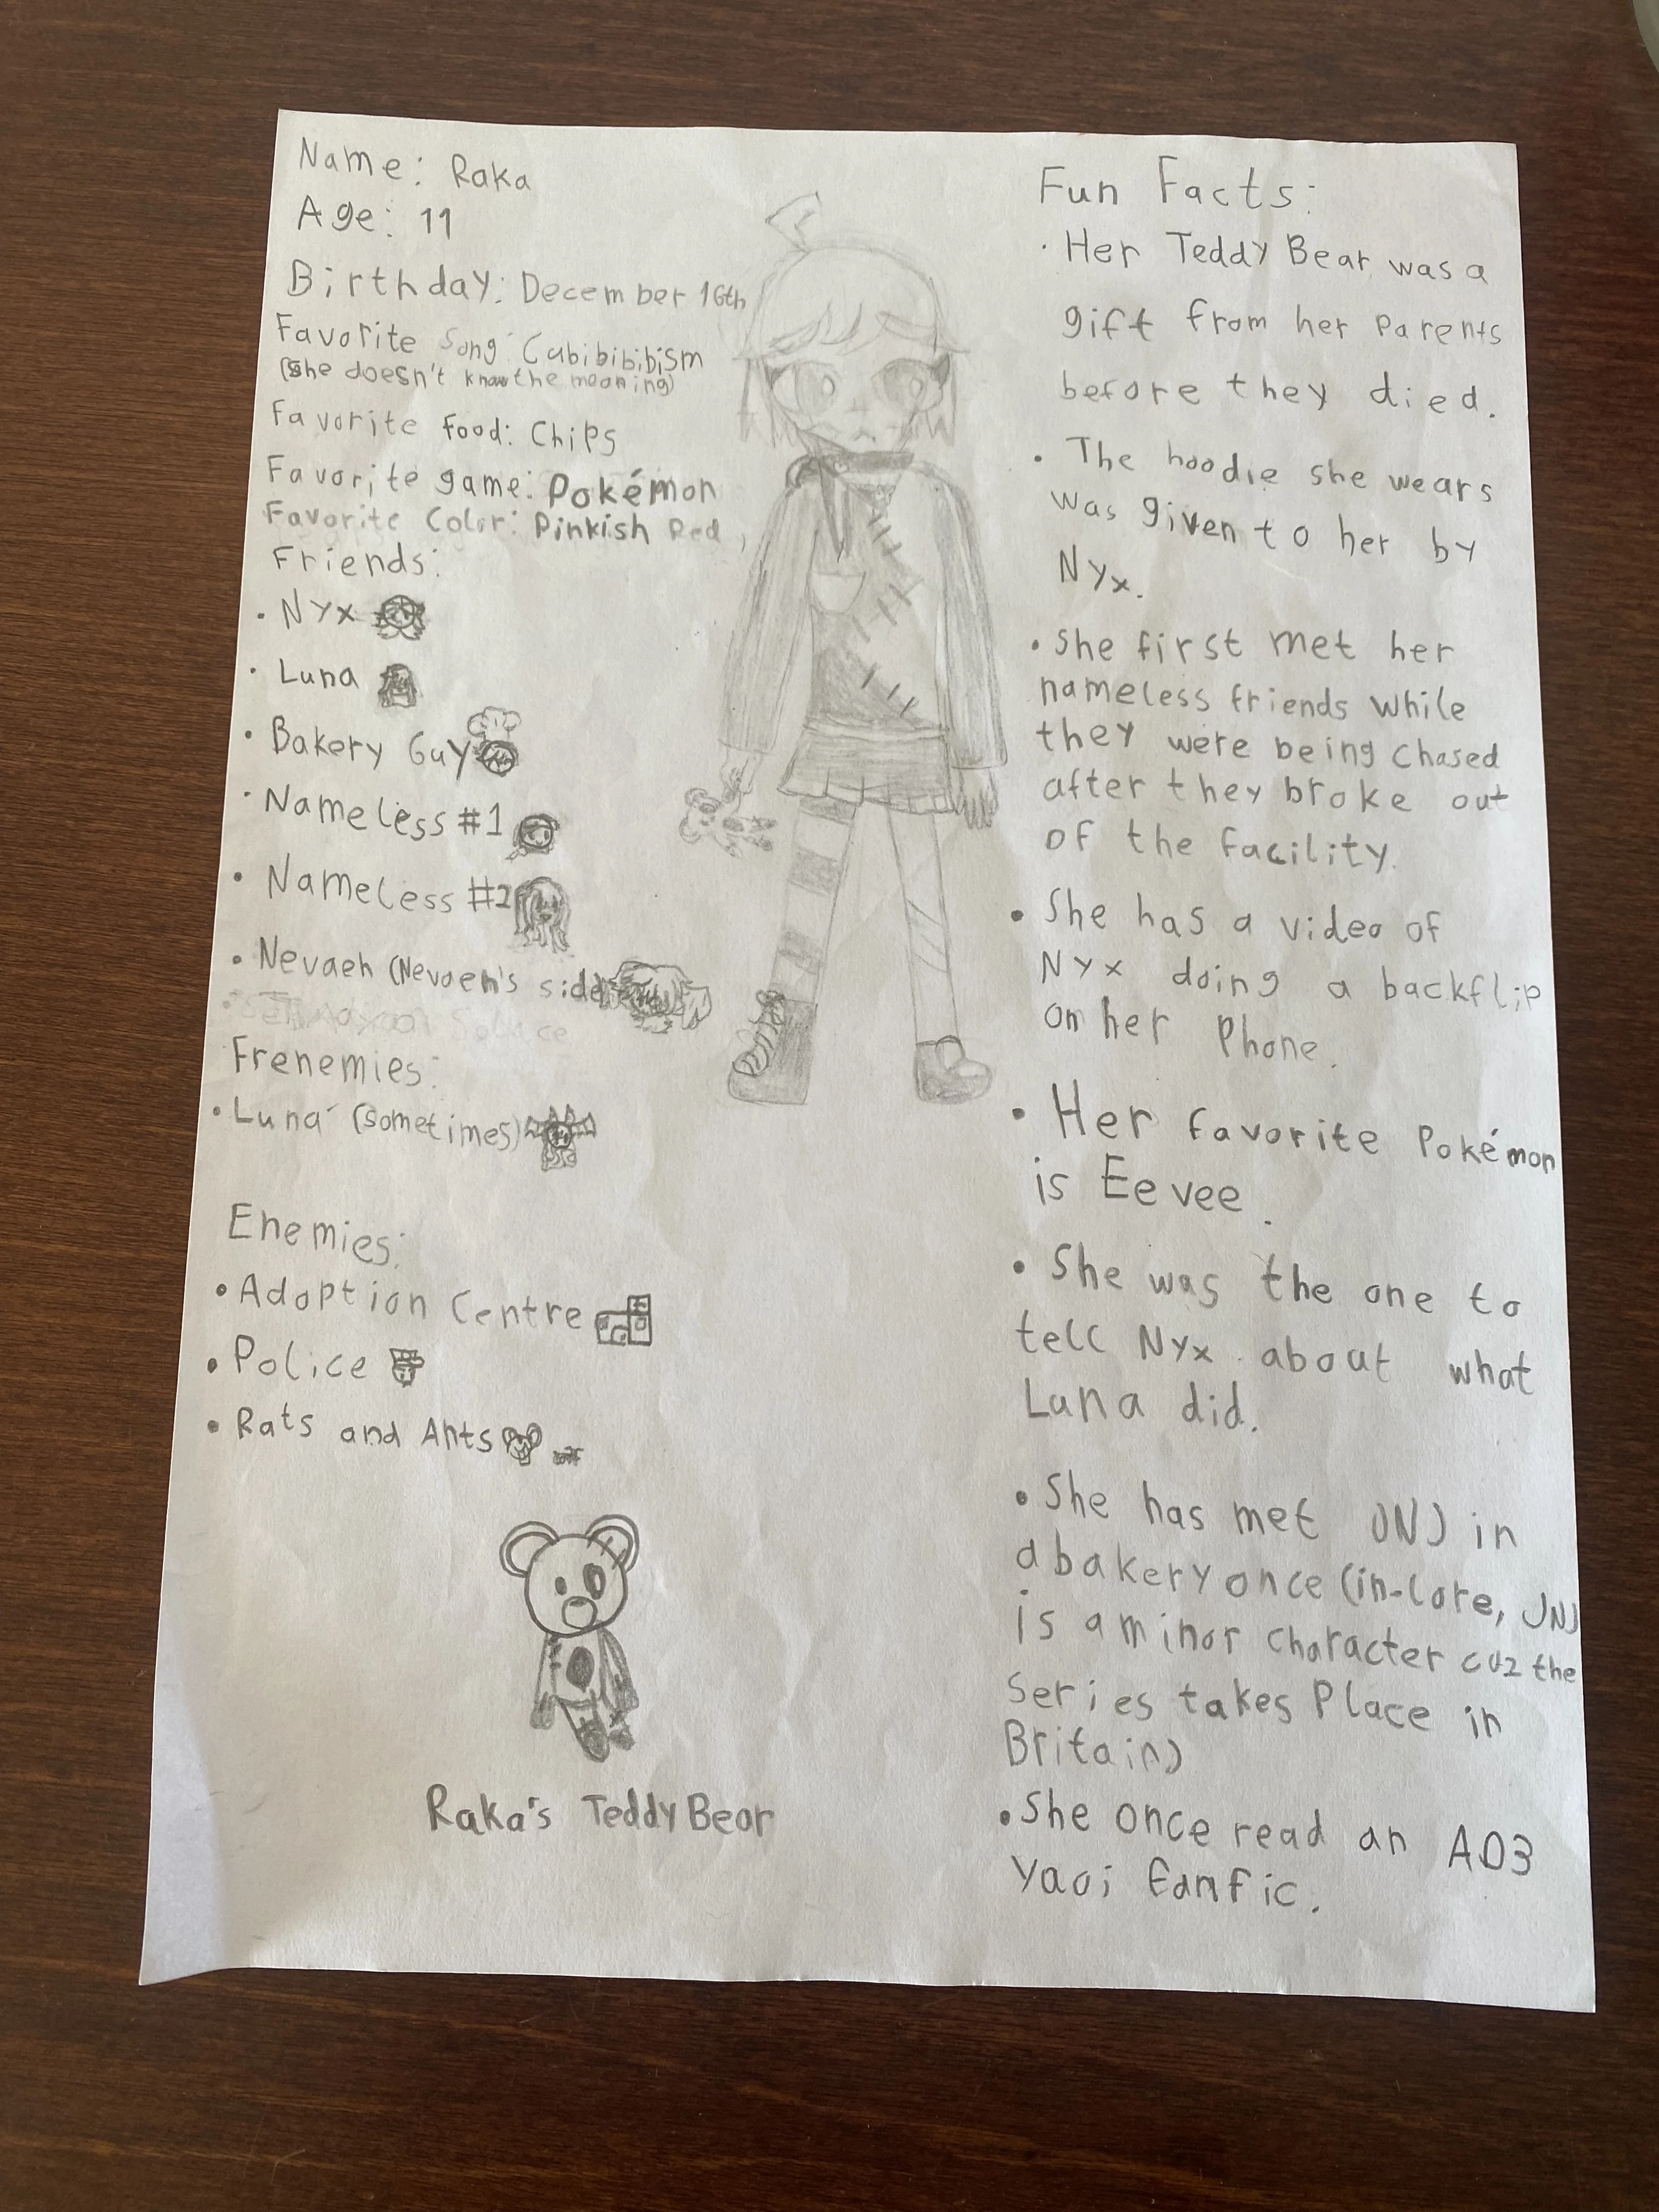 Name: Raka
Age: 11
Birthday: December 16th
Favorite Song: Cubibibibism
(She doesn't know the meaning)
Favorite food: Chips
Favorite game: Pokémon
Favorite Color: Pinkish Red
Friends:
• Nyx
• Luna
• Bakery Guy
• Nameless #1
• Nameless #2
• Nevaeh (Nevaeh's side
Frenemies:
• Luna (sometimes)
Enemies:
• Adoption Centre
• Police
• Rats and Ants
Raka's Teddy Bear
Fun Facts:
• Her Teddy Bear was a
gift from her parents
before they died.
• The hoodie she wears
was given to her by
Nyx.
• She first met her
nameless friends while
they were being chased
after they broke out
of the facility.
• She has a video of
Nyx doing a backflip
on her Phone.
• Her favorite Pokémon
is Eevee.
• She was the one to
tell Nyx about what
Luna did.
• She has met JNJ in
a bakery once (in-lore, JNJ
is a minor character cuz the
series takes place in
Britain)
• She once read an AO3
Yaoi fanfic.